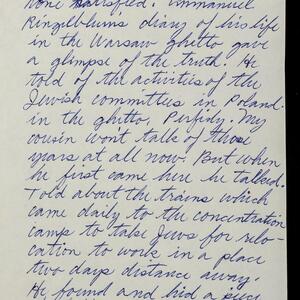 none satisfied. Immanuel
Ringelblums diary of his life
in the Warsaw ghetto gave
a glimpse of the truth. He
told of the activities of the
Jewish committees in Poland.
in the ghetto. Perfidy. My
cousin won't talk of those
years at all now. But when
he first came here he talked.
Told about the trains which
came daily to the concentration
camp to take Jews for relo-
cation to work in a place
two days distance away.
He found and hid a